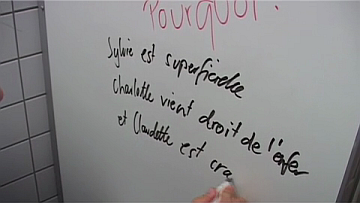 Pourquoi?
Sylvie est superficielle
Charlotte vient droit de l'enfer
et Claudette est cra